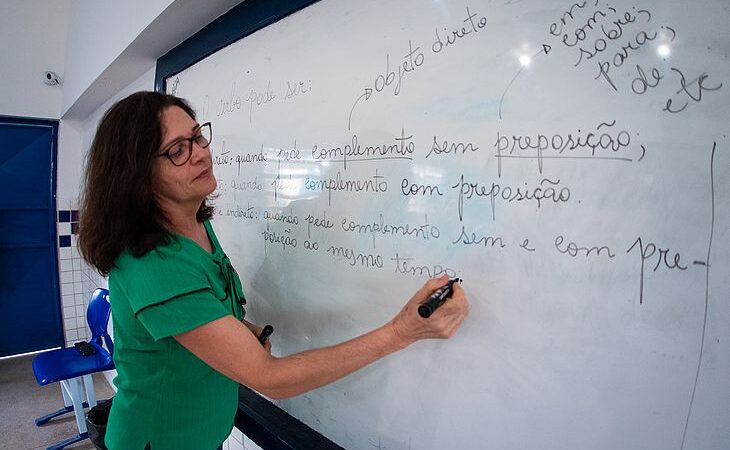 O verbo pode ser:
objeto direto
em;
com;
sobre;
para;
de
etc
quando pede complemento sem preposição;
quando pede complemento com preposição.
e indireto: quando pede complemento sem e com pre-
posição ao mesmo tempo.